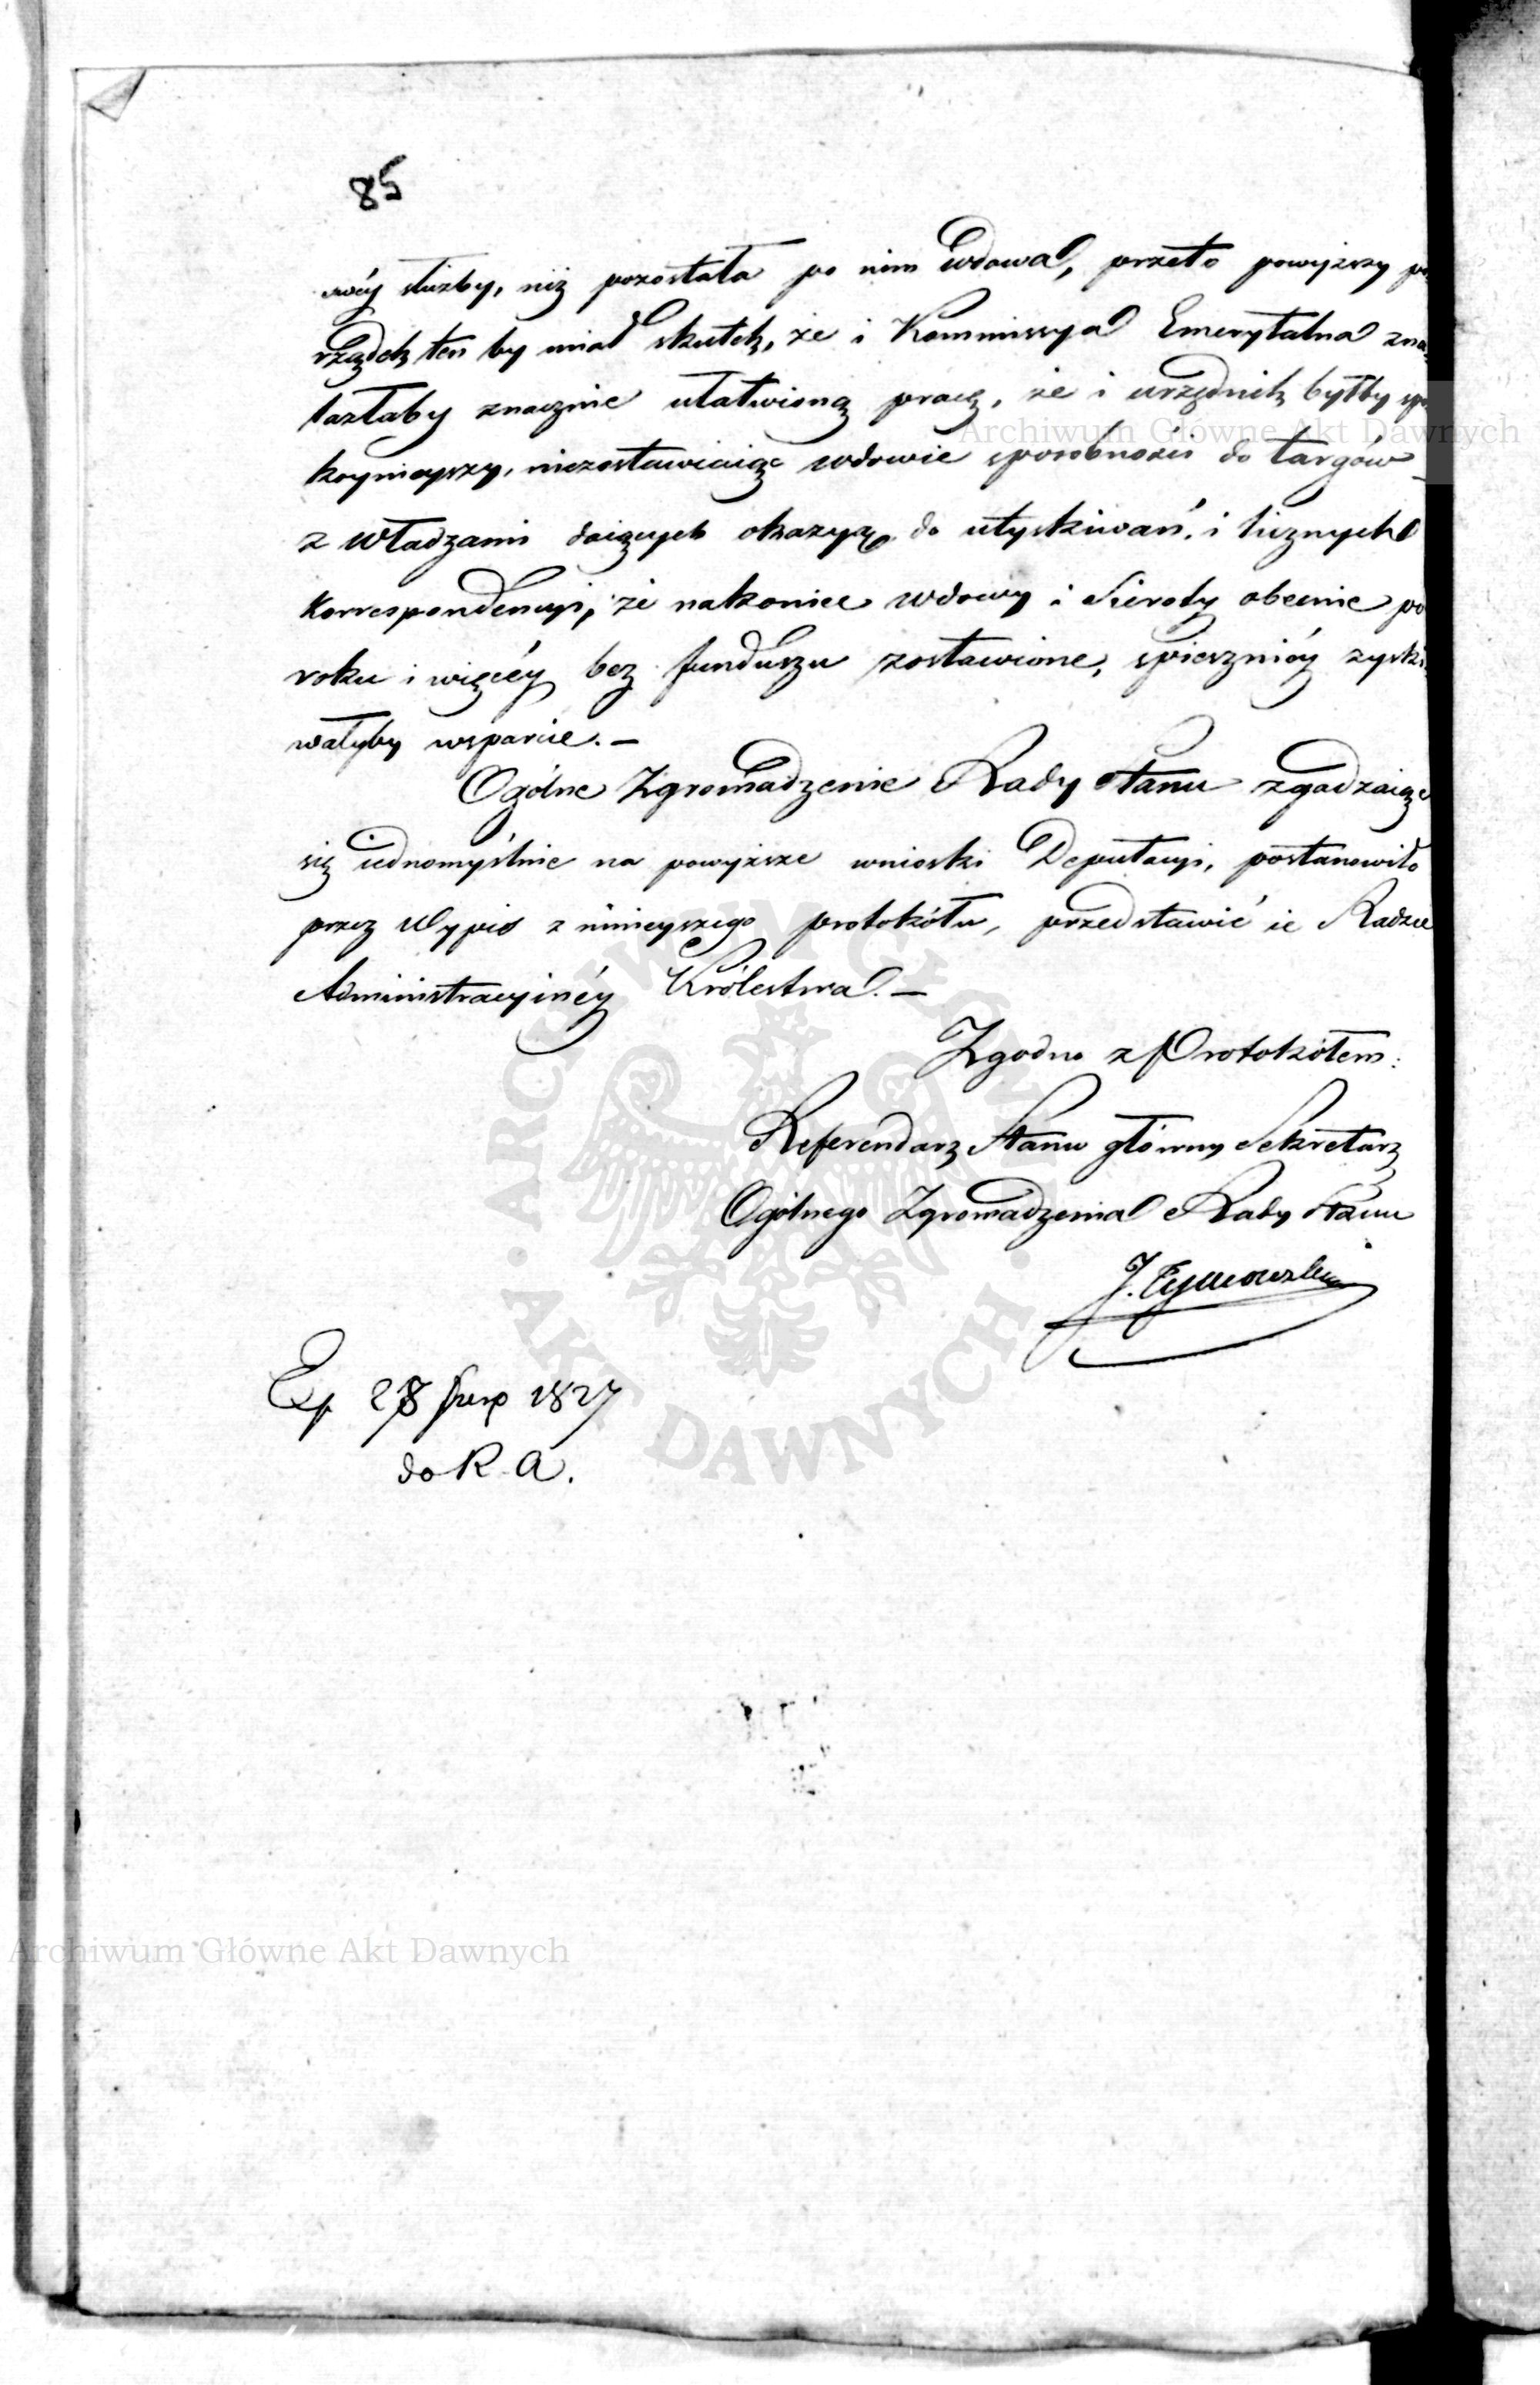 85
swéy służby, niż pozostała po nim wdowa, przeto powyższy po
rządek ten by miał skutek, że i Kommissya Emerytalna zna
lazłaby znacznie ułatwioną pracę, że i urzędnik byłby spo
koynieyszy, niezostawiaiąc wdowie sposobności do targów
z władzami daiących okazyą do utyskiwań i licznych
korrespondencyi, że nakoniec wdowy i Sieroty obecnie po
roku i więcéy bez funduszu zostawione, spieszniéy zyski
wałyby wsparcie. —
Ogólne Zgromadzenie Rady Stanu zgadzaiąc
się iednomyślnie na powyższe wnioski Deputacyi, postanowiło
przez Wypis z ninieyszego protokółu, przedstawić ie Radzie
Administracyinéy Królestwa. —
Zgodno z Protokółem:
Referendarz Stanu główny Sekretarz
Ogólnego Zgromadzenia Rady Stanu
J. Tymowski
Ex 28 1827
do R. A.
Archiwum Główne Akt Dawnych
Archiwum Główne Akt Dawnych
ARCHIWUM GŁÓWNE AKT DAWNYCH